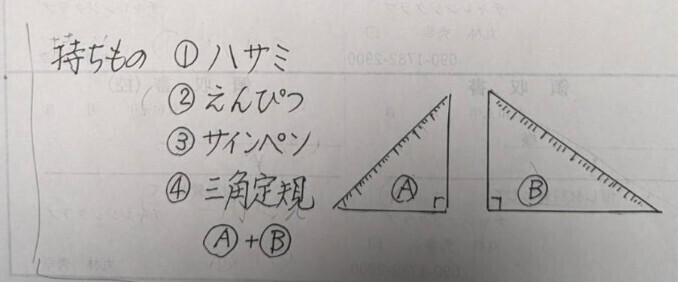 持ちもの ① ハサミ
② えんぴつ
③ サインペン
④ 三角定規
Ⓐ + Ⓑ
Ⓐ
Ⓑ